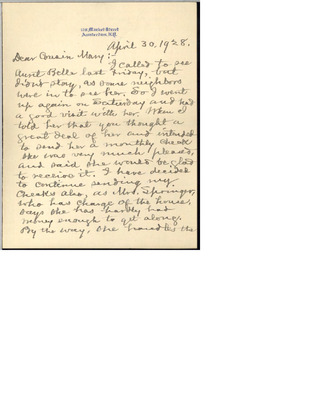 119 Market Street
Amsterdam, N.Y.
April 30, 1928.
Dear Cousin Mary:-
I called to see
Aunt Belle last Friday, but
didn't stay, as some neighbors
were in to see her. So I went
up again on Saturday and had
a good visit with her. When I
told her that you thought a
great deal of her and intended
to send her a monthly check
she was very much pleased,
and said she would be glad
to receive it. I have decided
to continue sending my
checks also, as Mrs. Springer,
who has charge of the house,
says she has hardly had
money enough to get along.
By the way, she handles the